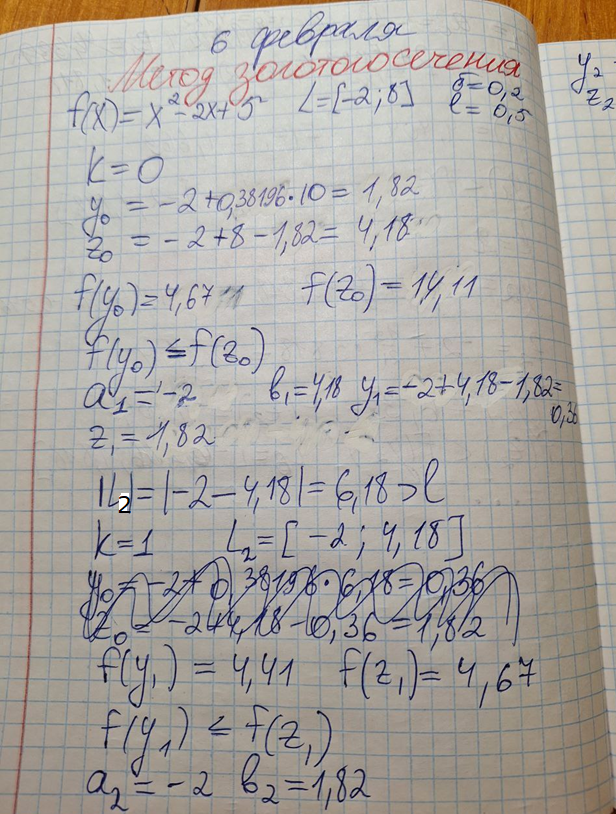 6 февраля
Метод золотого сечения
f(x) = x² - 2x + 5 L = [-2; 8] δ = 0,2
l = 0,5
k = 0
y₀ = -2 + 0,38196 · 10 = 1,82
z₀ = -2 + 8 - 1,82 = 4,18
f(y₀) = 4,67 f(z₀) = 14,11
f(y₀) ≤ f(z₀)
a₁ = -2 b₁ = 4,18 y₁ = -2 + 4,18 - 1,82 =
0,36
z₁ = 1,82
|L₂| = |-2 - 4,18| = 6,18 > l
k = 1 L₂ = [-2; 4,18]
y₀ = -2 + 0,38196 · 6,18 = 0,36
z₀ = -2 + 4,18 - 0,36 = 1,82
f(y₁) = 4,41 f(z₁) = 4,67
f(y₁) ≤ f(z₁)
a₂ = -2 b₂ = 1,82
y₂
z₂